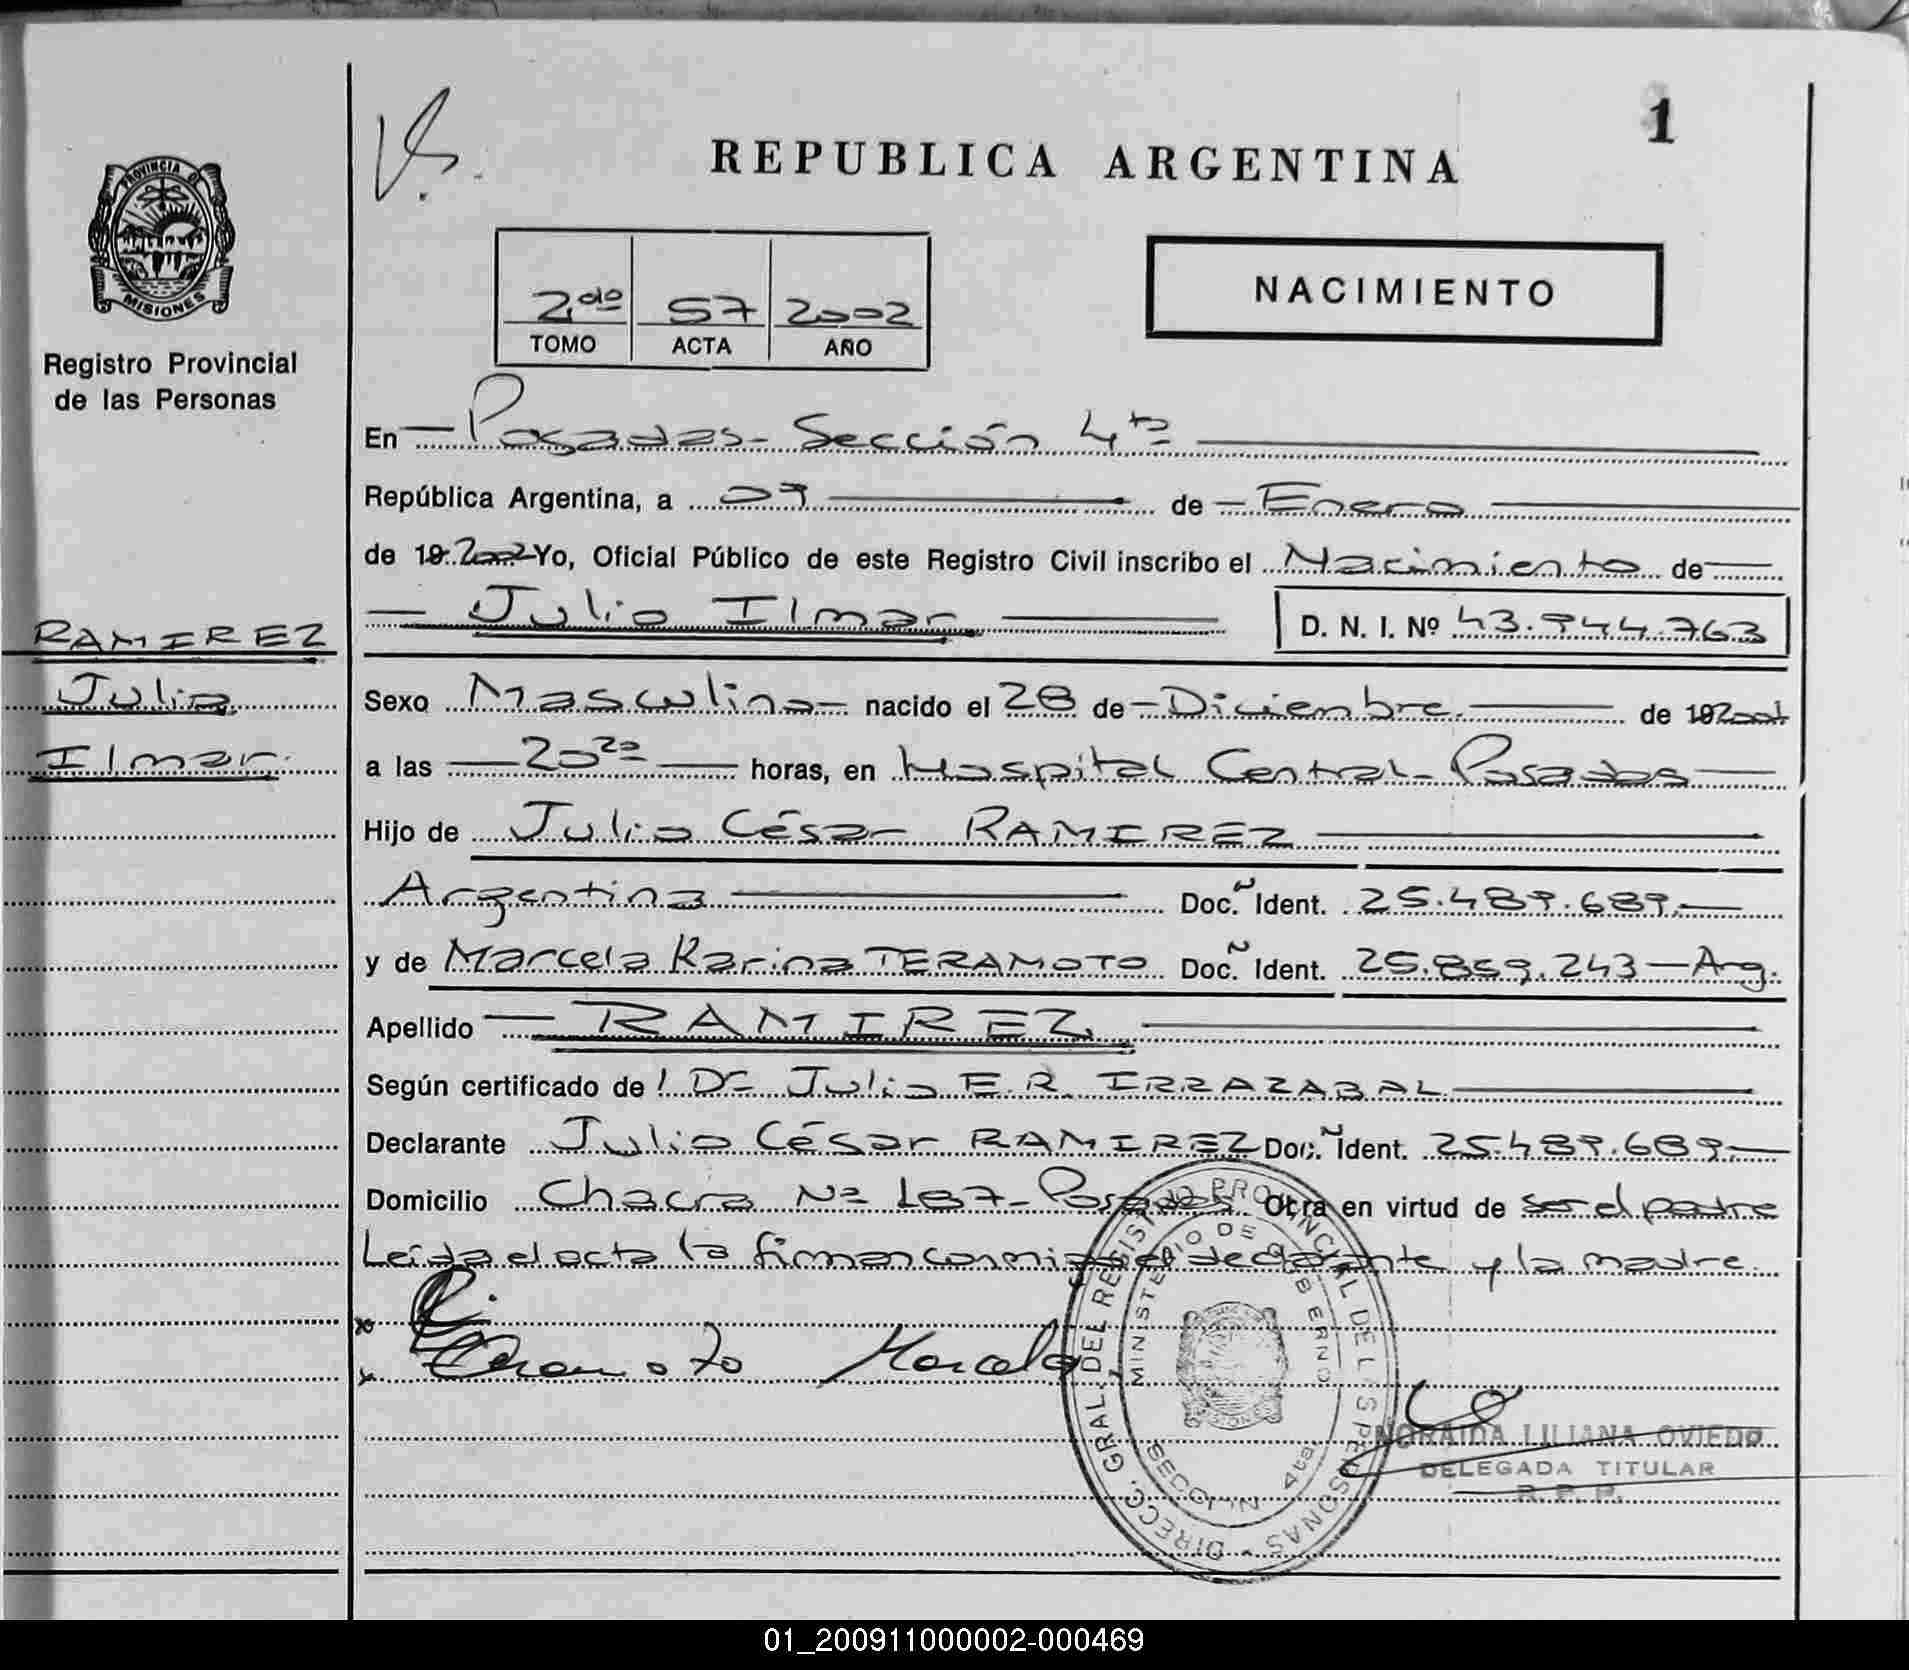 1
REPUBLICA ARGENTINA
PROVINCIA DE
MISIONES
Registro Provincial
de las Personas
2do 57 2002
TOMO ACTA AÑO
NACIMIENTO
En Posadas - Sección 4ta
República Argentina, a 09 de Enero
de 19 2002 Yo, Oficial Público de este Registro Civil inscribo el Nacimiento de
Julio Ilmar D. N. I. Nº 43.944.763
RAMIREZ
Julio
Ilmar.
Sexo Masculino nacido el 28 de Diciembre de 19 2001
a las 20 20 horas, en Hospital Central - Posadas
Hijo de Julio César RAMIREZ
Argentina Doc. Ident. 25.489.689.-
y de Marcela Karina TERAMOTO Doc. Ident. 25.859.243 - Arg.
Apellido RAMIREZ
Según certificado de: Dr Julio E.R. IRRAZABAL
Declarante Julio César RAMIREZ Doc. Ident. 25.489.689.-
Domicilio Chacra Nº 187 - Posadas Obra en virtud de ser el padre
Leída el acta la firman conmigo el declarante y la madre.
x
x Teramoto Marcela
DIRECC. GRAL. DEL REGISTRO PROVINCIAL DE LAS PERSONAS
MINISTERIO DE GOBIERNO
SECCION 4ta
NORAIDA LILIANA OVIEDO
DELEGADA TITULAR
R. P. P.
01_200911000002-000469